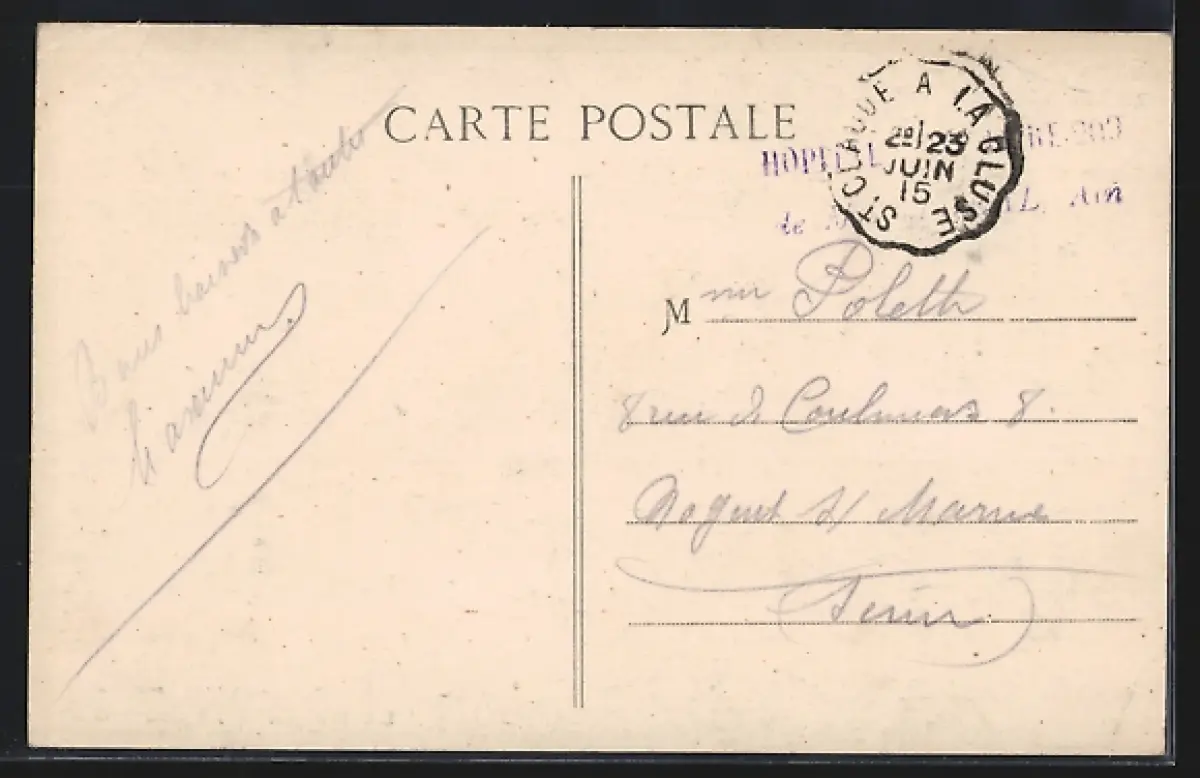 CARTE POSTALE
ST CLAUDE A LA CLUSE
2º 23
JUIN
15
HOPITAL
de
Ain
Bons baisers a toutes
M me Poleth
8 rue de Coulmiers 8.
Nogent s/ Marne
(Seine)